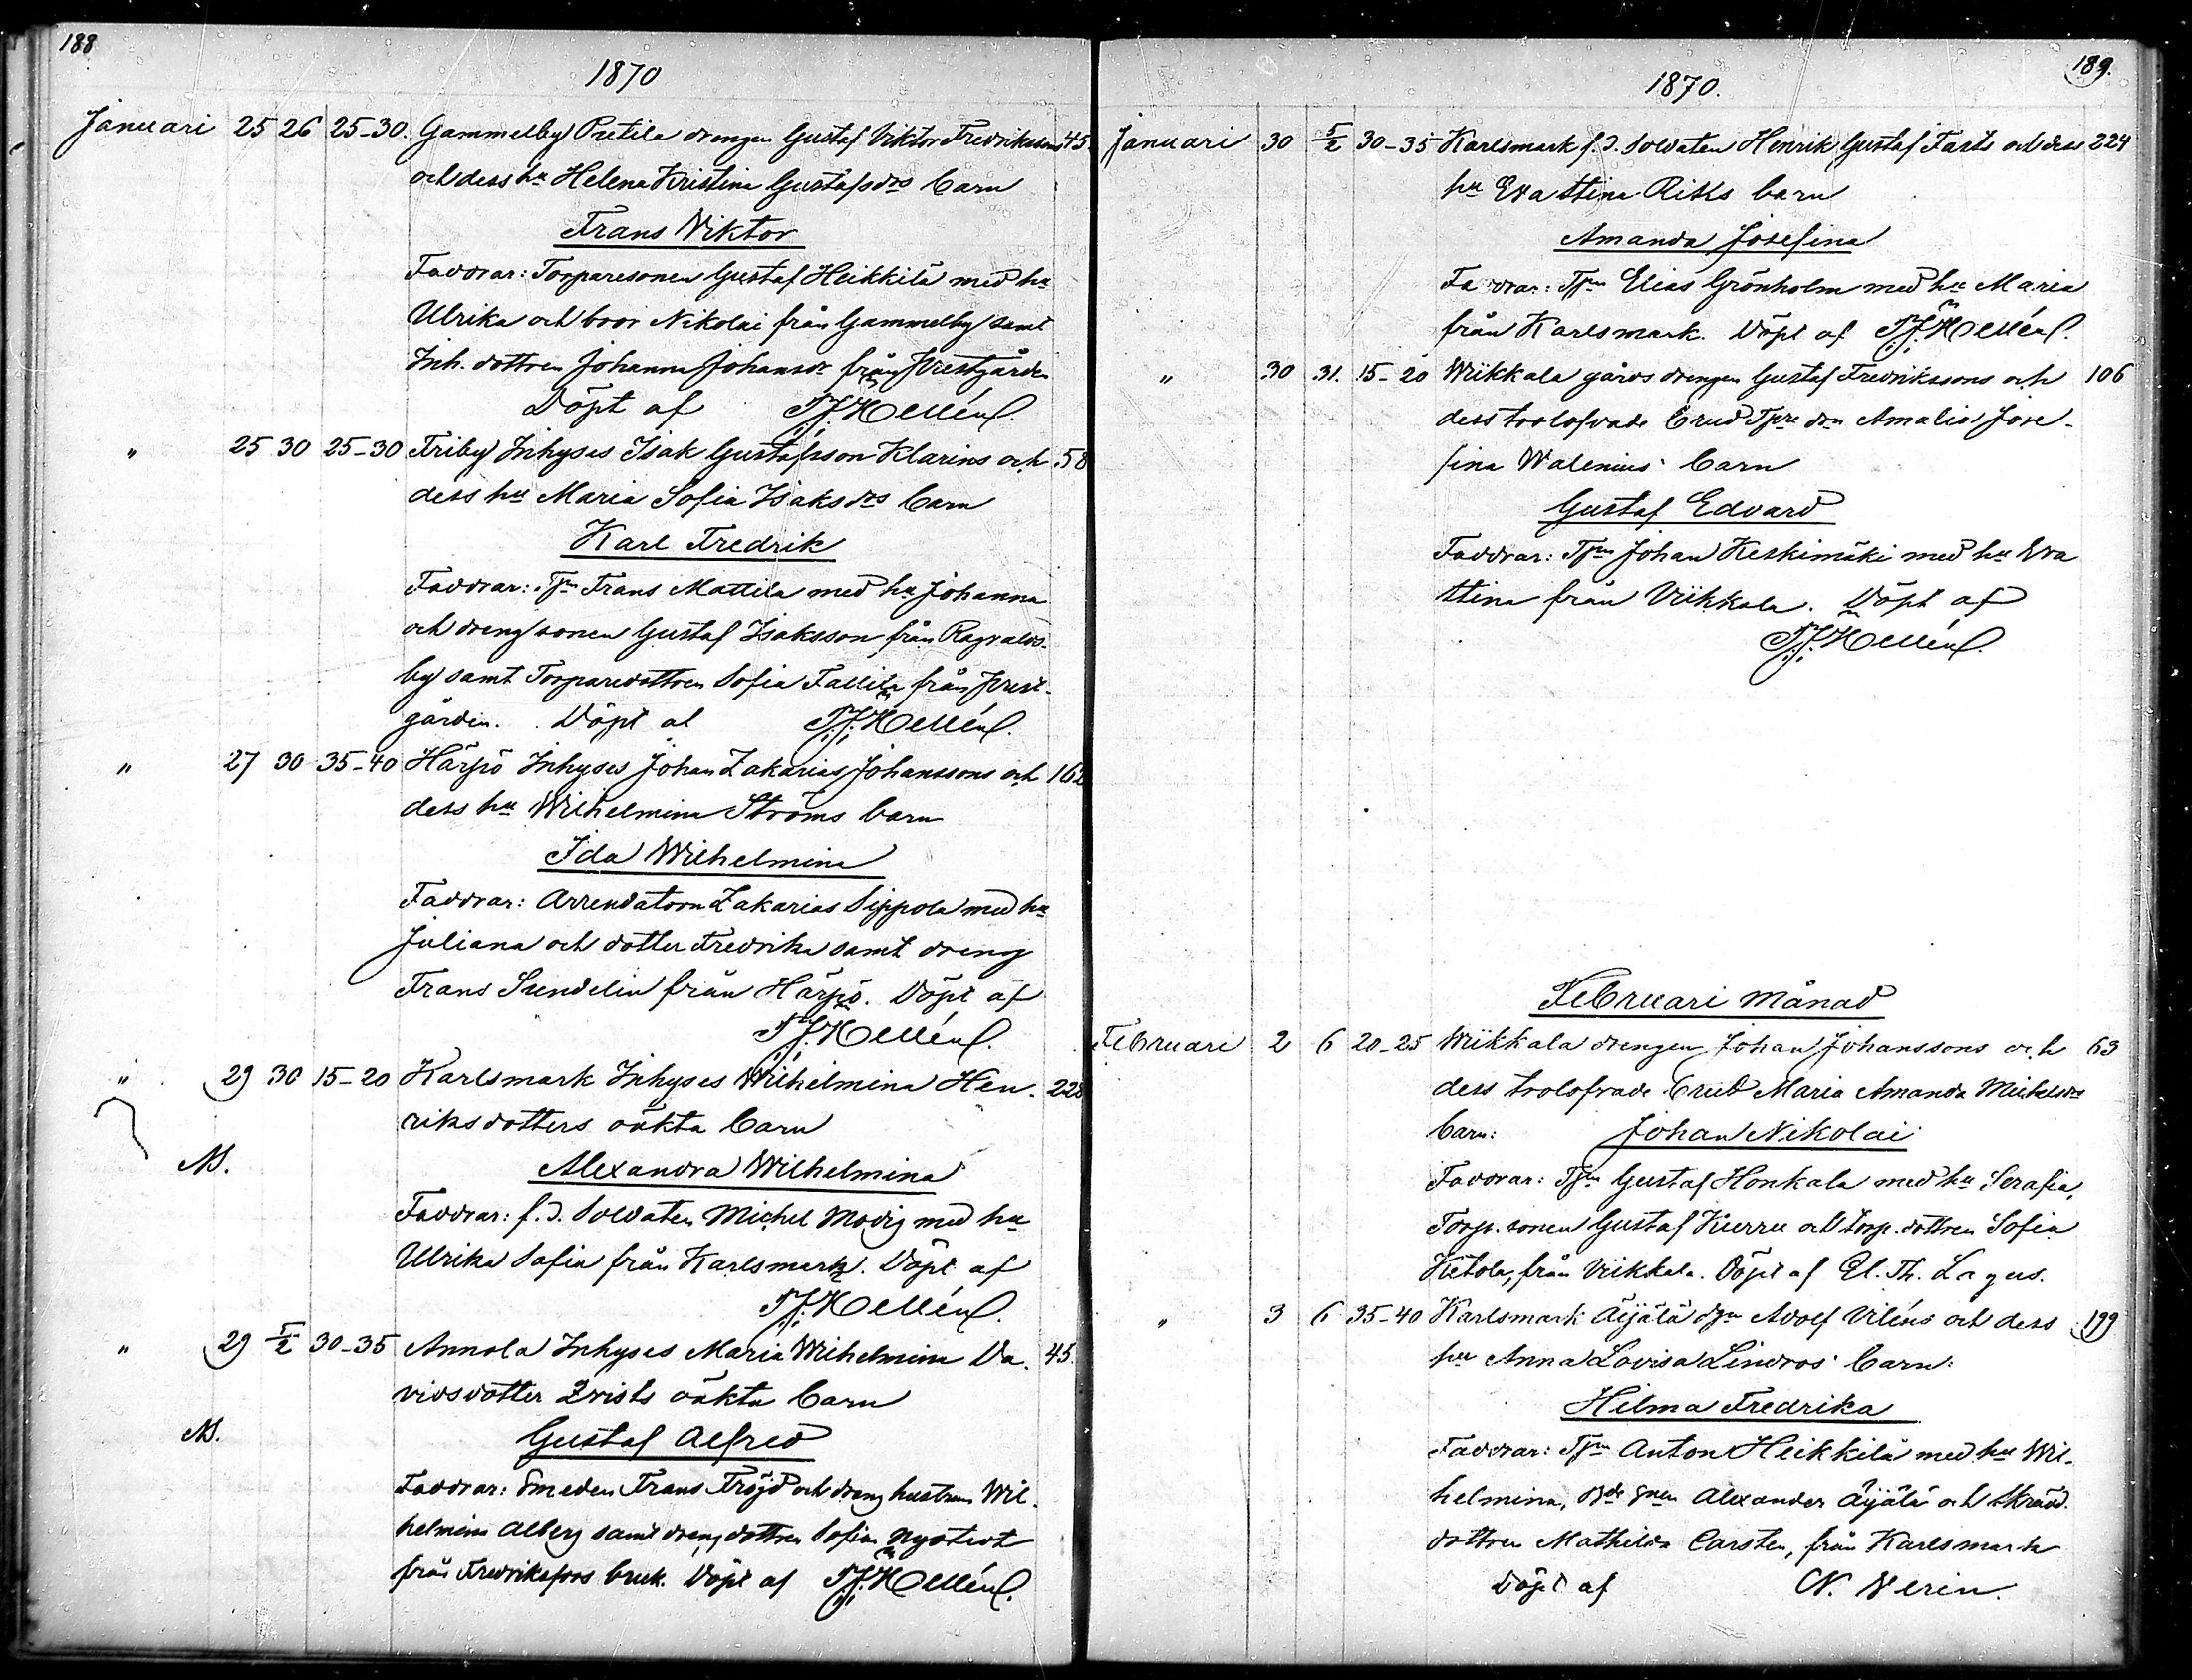 188
1870
Januari 25 26 25-30. Gammelby Pertila drengen Gustaf Viktor Fredrikssons 45.
och dess hu Helena Kristina Gustafsdrs barn
Frans Viktor
Faddrar: Torparesonen Gustaf Heikkilä med hu
Ulrika och bror Nikolai från Gammelby samt
Inh. dottren Johanna Johansdr från Prestgården
Döpt af T.J. Hellén.
" 25 30 25-30 Friby Inhyses Isak Gustafsson Klarins och 58
dess hu Maria Sofia Isaksdrs barn
Karl Fredrik
Faddrar: Frans Mattila med hu Johanna
och drengsonen Gustaf Isaksson från Ragvalds-
by samt Torparedottren Sofia Fallila från Prest-
gården. Döpt af T.J. Hellén.
" 27 30 35-40 Härpö Inhyses Johan Zakarias Johanssons och 162
dess hu Wilhelmina Ströms barn
Ida Wilhelmina
Faddrar: Arrendatorn Zakarias Sippola med hu
Juliana och dotter Fredrika samt dreng
Frans Sundelin från Härpö. Döpt af
T.J. Hellén.
" 29 30 15-20 Karlsmark Inhyses Wilhelmina Hen- 228
riksdotters oäkta barn
Alexandra Wilhelmina
Faddrar: f.d. Soldaten Michel Modig med hu
Ulrika Sofia från Karlsmark. Döpt af
T.J. Hellén.
" 29 5/2 30-35 Annola Inhyses Maria Wilhelmina Da- 45.
vidsdotter Qvists oäkta barn
Gustaf Alfred
Faddrar: Smeden Frans Fröjd och dreng hustrun Wil-
helmina Alberg samt drengdottren Sofia Nyqvist
från Fredriksfors bruk. Döpt af T.J. Hellén.
189.
1870.
Januari 30 5/2 30-35 Karlsmark f.d. Soldaten Henrik Gustaf Fasts och dess 224
hu Eva Stina Riks barn
Amanda Josefina
Faddrar: Tpn Elias Grönholm med hu Maria
från Karlsmark. Döpt af T.J. Hellén.
" 30 31. 15-20 Wiikkala gårds drengen Gustaf Fredrikssons och 106
dess trolofvade brud Amalia Jose-
fina Walenius' barn
Gustaf Edvard
Faddrar: Tpn Johan Keskimäki med hu Eva
Stina från Viikkala. Döpt af
T.J. Hellén.
Februari månad
Februari 2 6 20-25 Wiikkala drengen Johan Johanssons och 63
dess trolofvade brud Maria Amanda Mickelsdrs
barn: Johan Nikolai
Faddrar: Tpn Gustaf Honkala med hu Serafia,
Torp. sonen Gustaf Kierru och torp. dottren Sofia
Ketola, från Viikkala. Döpt af El. Th. Lagus.
" 3 6 35-40 Karlsmark Äijälä Adolf Viléns och dess 199
hu Anna Lovisa Lindros' barn:
Hilma Fredrika
Faddrar: Tpn Anton Heikkilä med hu Wil-
helmina, Alexander Äijälä och Skrädd.
dottren Mathilda Carsten, från Karlsmark
Döpt af N. Nerin.